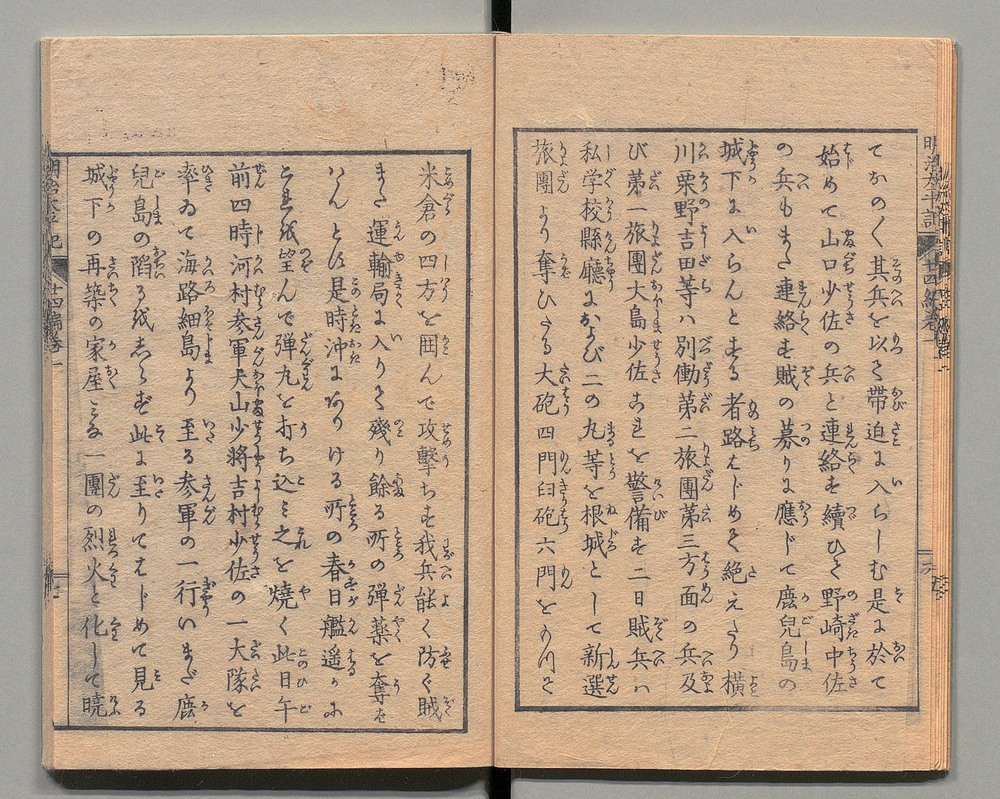 明治太平記
十四編巻一
てかのく其兵を以て帯迫に入らしむ是に於て
始めて山口少佐の兵と連絡を續ひて野崎中佐
の兵もまた連絡を賊の募りに應じて鹿兒島の
城下に入らんとする者路はじめて絶えたり横
川栗野吉田等ハ別働第二旅團第三方面の兵及
び第一旅團大島少佐これを警備す二日賊兵ハ
私学校縣廳および二の丸等を根城として新選
旅團より奪ひたる大砲四門臼砲六門をもつて
米倉の四方を囲んで攻撃ちす我兵能く防ぐ賊
また運輸局に入りて殘り餘る所の彈薬を奪は
はんとす是時沖にありける所の春日艦遥かに
これを望んで弾丸を打ち込ミ之を燒く此日午
前四時河村参軍大山少将吉村少佐の一大隊を
率ゐて海路細島より至る参軍の一行いまだ鹿
兒島の陷るを志らず此に至りてはじめて見る
城下の再築の家屋ミな一團の烈火と化して曉
明治太平記
十四編巻一